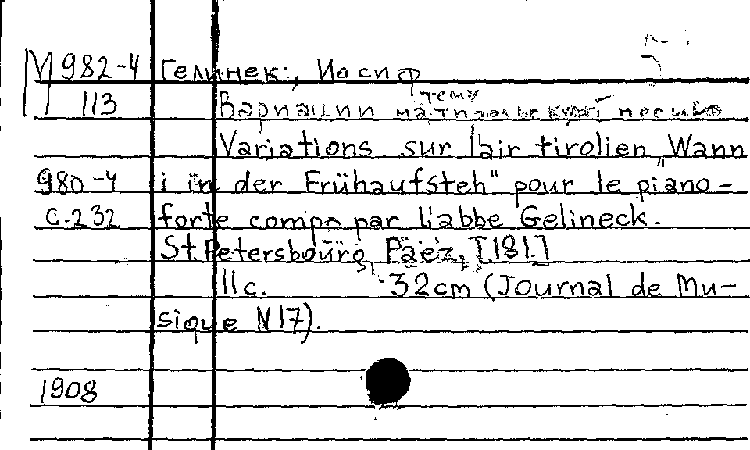 М 982-4 Гелинек, Иосиф
113 Вариации на тему тирольской песни
Variations sur l'air tirolien „Wann
980-4 i in der Frühaufsteh" pour le piano-
с-232 forte comp. par l'abbe Gelineck.
St. Petersbourg, Paez, [181.]
11 с. 32 cm (Journal de Mu-
sique N 17).
1908